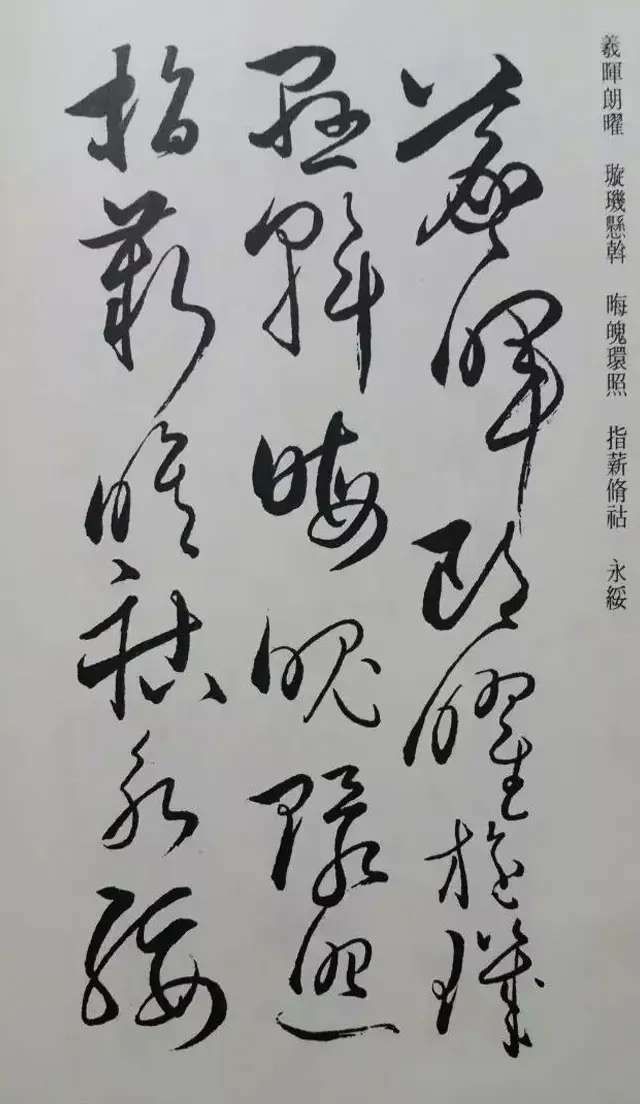 羲暉朗曜　璇璣懸斡　晦魄環照　指薪脩祜　永綏
羲暉朗曜璇璣
懸斡晦魄環照
指薪脩祜永綏